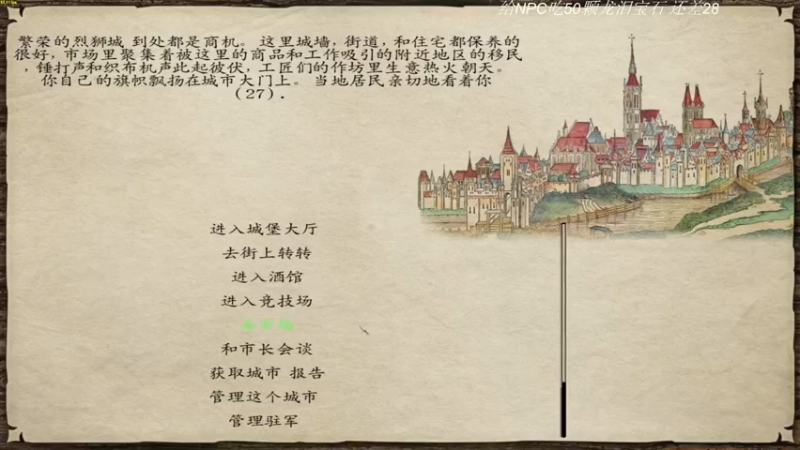 给NPC吃50颗龙泪宝石 还差28
繁荣的烈狮城 到处都是商机。这里城墙,街道,和住宅都保养的
很好,市场里聚集着被这里的商品和工作吸引的附近地区的移民
,锤打声和织布机声此起彼伏,工匠们的作坊里生意热火朝天。
你自己的旗帜飘扬在城市大门上。当地居民亲切地看着你
(27).
进入城堡大厅
去街上转转
进入酒馆
进入竞技场
和市长会谈
获取城市 报告
管理这个城市
管理驻军